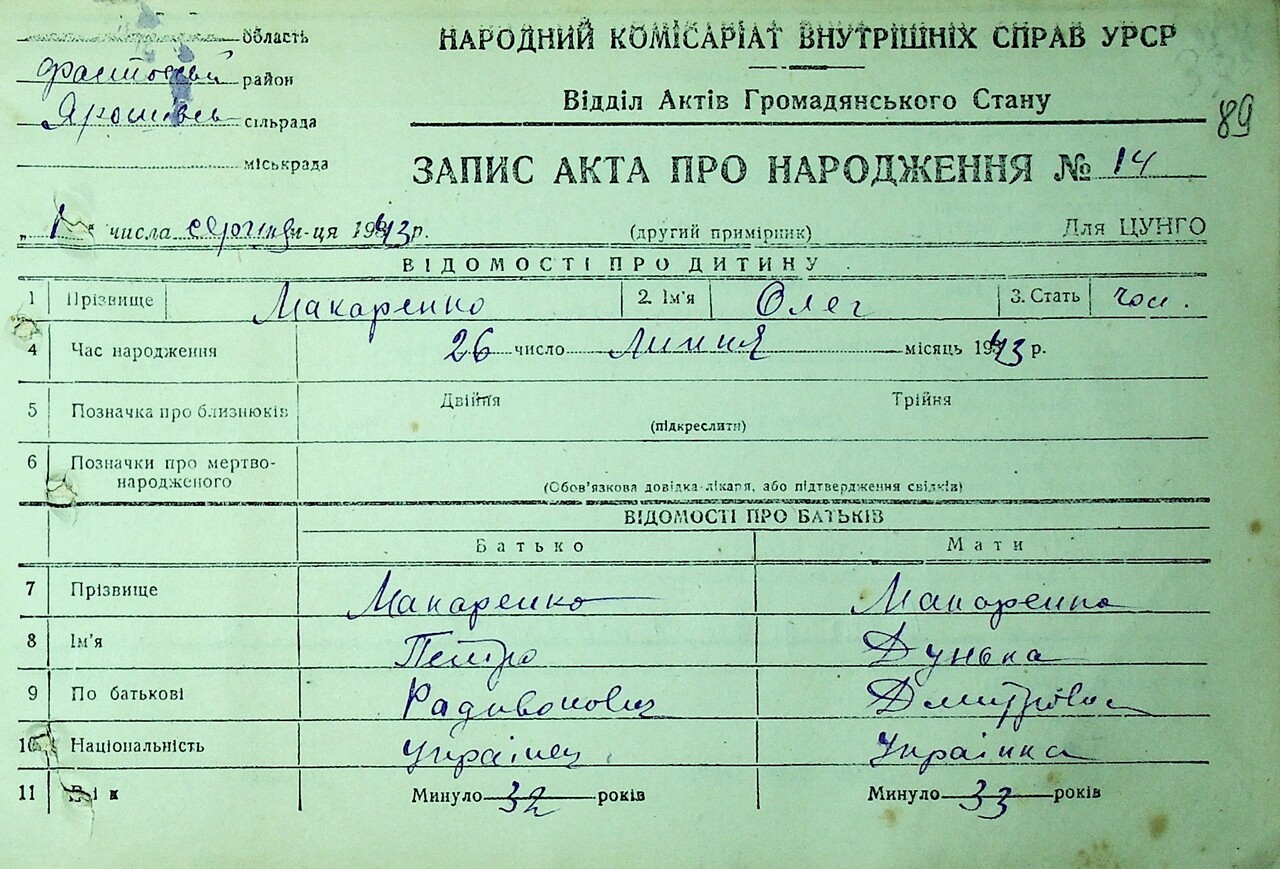 область
НАРОДНИЙ КОМІСАРІАТ ВНУТРІШНІХ СПРАВ УРСР
район
Відділ Актів Громадянського Стану
сільрада
89
міськрада
ЗАПИС АКТА ПРО НАРОДЖЕННЯ № 14
„1“ числа серпня м-ця 1943 р. (другий примірник) Для ЦУНГО
ВІДОМОСТІ ПРО ДИТИНУ
1 Прізвище Макаренко 2. Ім'я Олег 3. Стать чол.
4 Час народження 26 число липня місяць 1943 р.
5 Позначка про близнюків Двійня Трійня
(підкреслити)
6 Позначки про мертво-
народженого (Обов'язкова довідка лікаря, або підтвердження свідків)
ВІДОМОСТІ ПРО БАТЬКІВ
Батько Мати
7 Прізвище Макаренко Макаренко
8 Ім'я Петро Дунька
9 По батькові Радивонович Дмитрівна
10 Національність Українец Українка
11 Вік Минуло 32 років Минуло 33 років